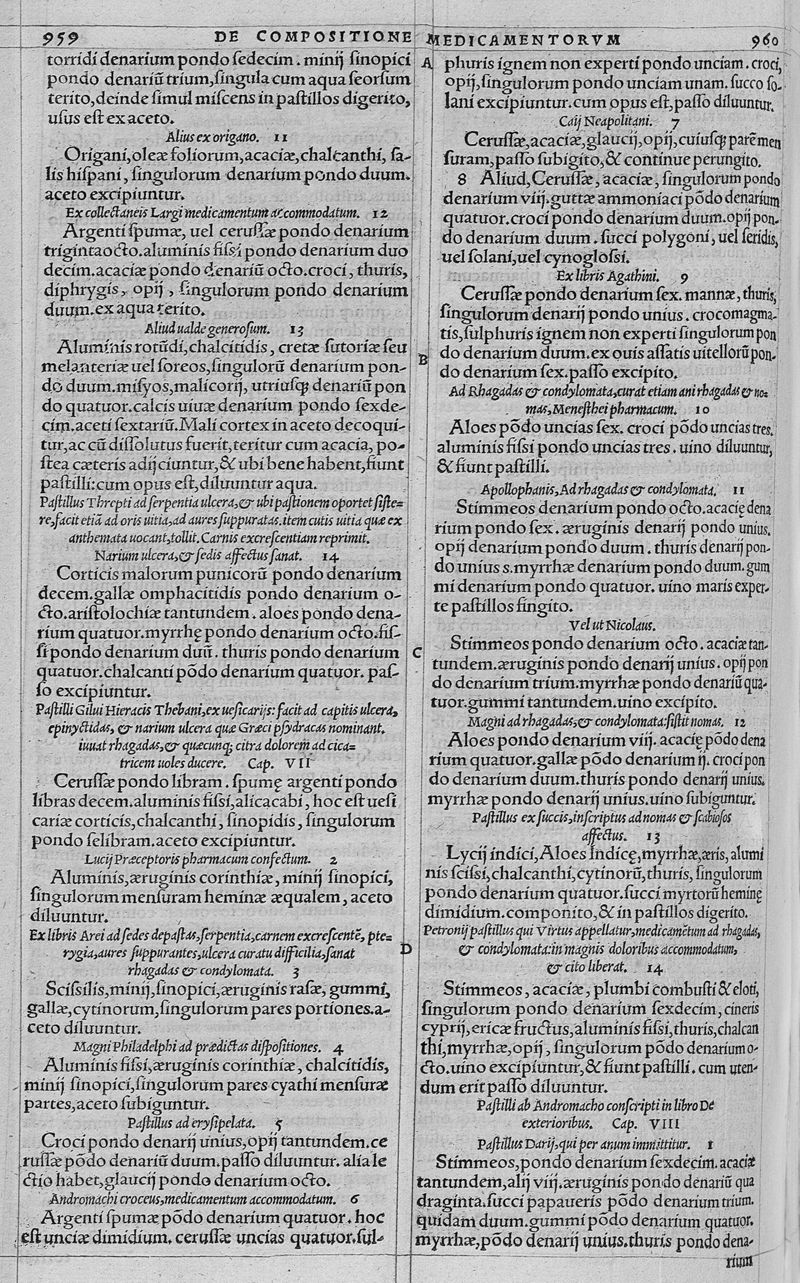 959 DE COMPOSITIONE
torridi denarium pondo ſedecim. minij ſinopici
pondo denariũ trium, ſingula cum aqua ſeorſum
terito, deinde ſimul miſcens in paſtillos digerito,
uſus eſt ex aceto.
Alius ex origano. 11
Origani, oleæ foliorum, acaciæ, chalcanthi, ſa-
lis hiſpani, ſingulorum denarium pondo duum.
aceto excipiuntur.
Ex collectaneis Largi medicamentum accommodatum. 12
Argenti ſpumæ, uel ceruſſæ pondo denarium
trigintaocto. aluminis fiſsi pondo denarium duo
decim. acaciæ pondo denariũ octo. croci, thuris,
diphrygis, opij, ſingulorum pondo denarium
duum. ex aqua terito.
Aliud ualde generoſum. 13
Aluminis rotũdi, chalcitidis, cretæ ſutoriæ ſeu
melanteriæ uel ſoreos, ſingulorũ denarium pon-
do duum. miſyos, malicorij, utriuſq; denariũ pon
do quatuor. calcis uiuæ denarium pondo ſexde-
cim. aceti ſextariũ. Mali cortex in aceto decoqui-
tur, ac cũ diſſolutus fuerit, teritur cum acacia, po-
ſtea cæteris adijciuntur, & ubi bene habent, fiunt
paſtilli: cum opus eſt, diluuntur aqua.
Paſtillus Threpti ad ſerpentia ulcera, & ubi paſtionem oportet ſiſte=
re, facit etiã ad oris uitia, ad aures ſuppuratas. item cutis uitia quæ ex
anthemata uocant, tollit. Carnis excreſcentiam reprimit.
Narium ulcera, & ſedis affectus ſanat. 14
Corticis malorum punicorũ pondo denarium
decem. gallæ omphacitidis pondo denarium o-
cto. ariſtolochiæ tantundem. aloes pondo dena-
rium quatuor. myrrhę pondo denarium octo. fiſ-
ſi pondo denarium duũ. thuris pondo denarium
quatuor. chalcanti põdo denarium quatuor. paſ-
ſo excipiuntur.
Paſtilli Gilui Hieracis Thebani, ex ueſicarijs: facit ad capitis ulcera,
epinyctidas, & narium ulcera quæ Græci pſydracas nominant.
iuuat rhagadas, & quæcunq; citra dolorem ad cica=
tricem uoles ducere. Cap. VII
Ceruſſæ pondo libram. ſpumę argenti pondo
libras decem. aluminis fiſsi, alicacabi, hoc eſt ueſi
cariæ corticis, chalcanthi, ſinopidis, ſingulorum
pondo ſelibram. aceto excipiuntur.
Lucij Præceptoris pharmacum confectum. 2
Aluminis, æruginis corinthiæ, minij ſinopici,
ſingulorum menſuram heminæ æqualem, aceto
diluuntur.
Ex libris Arei ad ſedes depaſtas, ſerpentia, carnem excreſcentẽ, pte=
rygia, aures ſuppurantes, ulcera curatu difficilia, ſanat
rhagadas & condylomata. 3
Sciſsilis, minij, ſinopici, æruginis raſæ, gummi,
gallæ, cytinorum, ſingulorum pares portiones. a-
ceto diluuntur.
Magni Philadelphi ad prædictas diſpoſitiones. 4
Aluminis fiſsi, æruginis corinthiæ, chalcitidis,
minij ſinopici, ſingulorum pares cyathi menſuræ
partes, aceto ſubiguntur.
Paſtillus ad eryſipelata. 5
Croci pondo denarij unius, opij tantundem. ce
ruſſæ põdo denariũ duum. paſſo diluuntur. alia le
ctio habet, glaucij pondo denarium octo.
Andromachi croceus, medicamentum accommodatum. 6
Argenti ſpumæ põdo denarium quatuor. hoc
eſt unciæ dimidium. ceruſſæ uncias quatuor. ſul-
MEDICAMENTORVM 960
A phuris ignem non experti pondo unciam. croci,
opij, ſingulorum pondo unciam unam. ſucco ſo-
lani excipiuntur. cum opus eſt, paſſo diluuntur.
Caij Neapolitani. 7
Ceruſſæ, acaciæ, glaucij, opij, cuiuſq; parẽ men
ſuram, paſſo ſubigito, & contínue perungito.
8 Aliud, Ceruſſæ, acaciæ, ſingulorum pondo
denarium viij. guttæ ammoniaci põdo denarium
quatuor. croci pondo denarium duum. opij pon-
do denarium duum. ſucci polygoni, uel ſeridis,
uel ſolani, uel cynogloſsi.
Ex libris Agathini. 9
Ceruſſæ pondo denarium ſex. mannæ, thuris,
ſingulorum denarij pondo unius. crocomagma-
tis, ſulphuris ignem non experti ſingulorum pon
B do denarium duum. ex ouis aſſatis uitellorũ pon-
do denarium ſex. paſſo excipito.
Ad Rhagadas & condylomata, curat etiam ani rhagadas & no=
mas, Meneſthei pharmacum. 10
Aloes põdo uncias ſex. croci põdo uncias tres.
aluminis fiſsi pondo uncias tres. uino diluuntur,
& fiunt paſtilli.
Apollophanis, Ad rhagadas & condylomata. 11
Stimmeos denarium pondo octo. acacię dena
rium pondo ſex. æruginis denarij pondo unius.
opij denarium pondo duum. thuris denarij pon-
do unius s. myrrhæ denarium pondo duum. gum
mi denarium pondo quatuor. uino maris exper-
te paſtillos fingito.
Vel ut Nicolaus.
Stimmeos pondo denarium octo. acaciæ tan-
C tundem. æruginis pondo denarij unius. opij pon
do denarium trium. myrrhæ pondo denariũ qua-
tuor. gummi tantundem. uino excipito.
Magni ad rhagadas, & condylomata: ſiſtit nomas. 12
Aloes pondo denarium viij. acacię põdo dena
rium quatuor. gallæ põdo denarium ij. croci pon
do denarium duum. thuris pondo denarij unius.
myrrhæ pondo denarij unius. uino ſubiguntur.
Paſtillus ex ſuccis, inſcriptus ad nomas & ſcabioſos
affectus. 13
Lycij indici, Aloes Indicę, myrrhæ, æris, alumi
nis ſciſsi, chalcanthi, cytinorũ, thuris, ſingulorum
pondo denarium quatuor. ſucci myrtorũ heminę
dimidium. componito, & in paſtillos digerito.
Petronij paſtillus qui Virtus appellatur, medicamẽtum ad rhagadas,
D & condylomata: in magnis doloribus accommodatum,
& cito liberat. 14
Stimmeos, acaciæ, plumbi combuſti & eloti,
ſingulorum pondo denarium ſexdecim, cineris
cyprij, ericæ fructus, aluminis fiſsi, thuris, chalcan
thi, myrrhæ, opij, ſingulorum põdo denarium o-
cto. uino excipiuntur, & fiunt paſtilli. cum uten-
dum erit paſſo diluuntur.
Paſtilli ab Andromacho conſcripti in libro De
exterioribus. Cap. VIII
Paſtillus Darij, qui per anum immittitur. 1
Stimmeos, pondo denarium ſexdecim. acaciæ
tantundem, alij viij. æruginis pondo denariũ qua
draginta. ſucci papaueris põdo denarium trium.
quidam duum. gummi põdo denarium quatuor.
myrrhæ, põdo denarij unius. thuris pondo dena-
rium